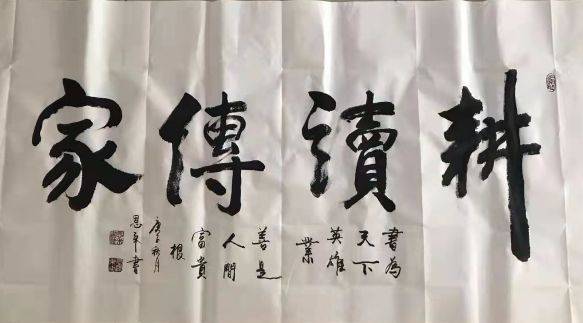 耕讀傳家
書為
天下
英雄
業
善是
人間
富貴
根
庚子秋月
書